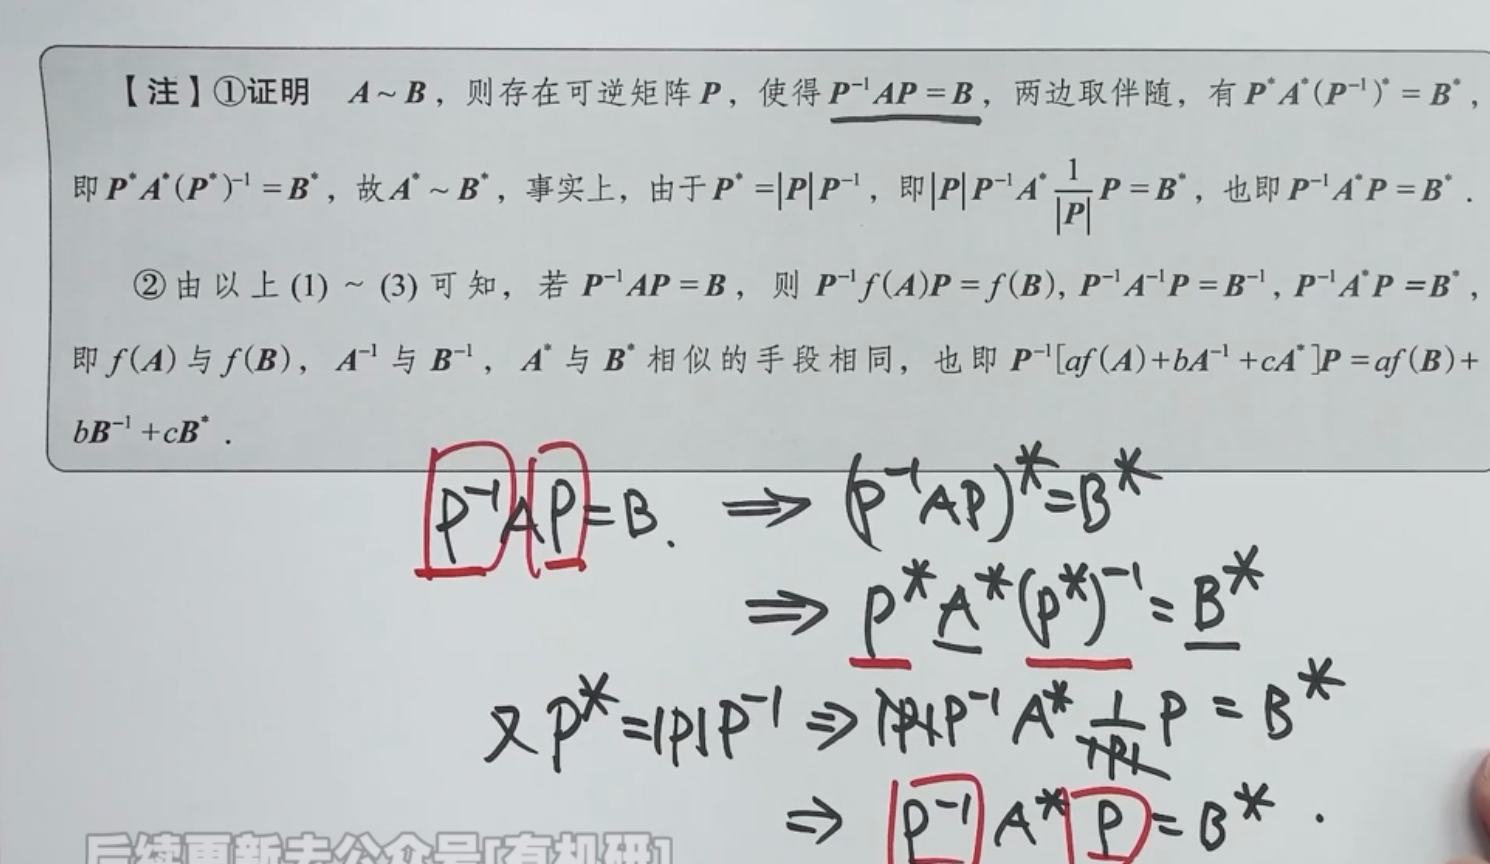 【注】①证明 A~B，则存在可逆矩阵P，使得P⁻¹AP=B，两边取伴随，有P*A*(P⁻¹)*=B*，
即P*A*(P*)⁻¹=B*，故A*~B*，事实上，由于P*=|P|P⁻¹，即|P|P⁻¹A*\frac{1}{|P|}P=B*，也即P⁻¹A*P=B*.
②由以上(1)~(3)可知，若P⁻¹AP=B，则P⁻¹f(A)P=f(B), P⁻¹A⁻¹P=B⁻¹, P⁻¹A*P=B*，
即f(A)与f(B)，A⁻¹与B⁻¹，A*与B*相似的手段相同，也即P⁻¹[af(A)+bA⁻¹+cA*]P=af(B)+
bB⁻¹+cB*.
P⁻¹AP=B. ⇒ (P⁻¹AP)*=B*
⇒ P*A*(P*)⁻¹=B*
又P*=|P|P⁻¹ ⇒ |P|P⁻¹A*\frac{1}{|P|}P=B*
⇒ P⁻¹A*P=B*.
后续更新去公众号[有机研]